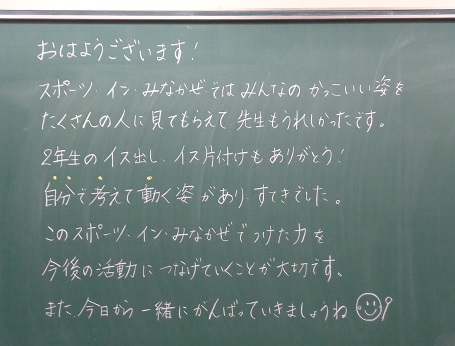 おはようございます!
スポーツ・イン・みなかぜではみんなのかっこいい姿を
たくさんの人に見てもらえて先生もうれしかったです。
2年生のイス出し、イス片付けもありがとう!
自分で考えて動く姿があり、すてきでした。
このスポーツ・イン・みなかぜでつけた力を
今後の活動につなげていくことが大切です。
また、今日から一緒にがんばっていきましょうね